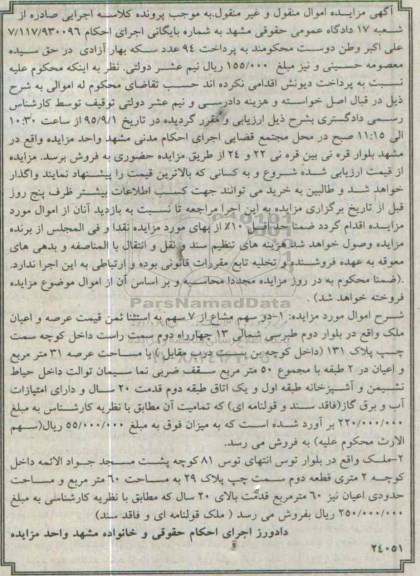 آگهی مزایده اموال منقول و غیر منقول.به موجب پرونده کلاسه اجرایی صادره از
شعبه ۱۷ دادگاه عمومی حقوقی مشهد به شماره بایگانی اجرای احکام ۷/۱۱۷/۹۳۰۰۹۶
علی اکبر وطن دوست محکومند به پرداخت ۹۴ عدد سکه بهار آزادی در حق سیده
معصومه حسینی و نیز مبلغ ۱۵۵/۰۰۰ ریال نیم عشر دولتی. نظر به اینکه محکوم علیه
نسبت به پرداخت دیونش اقدامی نکرده اند حسب تقاضای محکوم له اموالی به شرح
ذیل در قبال اصل خواسته و هزینه دادرسی و نیم عشر دولتی توقیف توسط کارشناس
رسمی دادگستری بشرح ذیل ارزیابی و مقرر گردیده در تاریخ ۹۵/۹/۱ از ساعت ۱۰:۳۰
الی ۱۱:۱۵ صبح در محل مجتمع قضایی اجرای احکام مدنی مشهد واحد مزایده واقع در
مشهد بلوار قره نی بین قره نی ۲۲ و ۲۴ از طریق مزایده حضوری به فروش برسد. مزایده
از قیمت ارزیابی شده شروع و به کسانی که بالاترین قیمت را پیشنهاد نمایند واگذار
خواهد شد و طالبین به خرید می توانند جهت کسب اطلاعات بیشتر ظرف پنج روز
قبل از تاریخ برگزاری مزایده به این اجرا مراجعه تا نسبت به بازدید آنان از اموال مورد
مزایده اقدام گردد ضمنا حداقل ۱۰٪ از بهای مورد مزایده نقدا و فی المجلس از برنده
مزایده وصول خواهد شد هزینه های تنظیم سند و نقل و انتقال بالمناصفه و بدهی های
معوقه به عهده فروشنده و تخلیه تابع مقررات قانونی بوده و ارتباطی به این اجرا ندارد.
.(ضمنا محکوم به در روز مزایده مجددا محاسبه و بر اساس آن از اموال موضوع مزایده
فروخته خواهد شد) .
شرح اموال مورد مزایده: ۱-دو سهم مشاع از ۷ سهم به استثنا ثمن قیمت عرصه و اعیان
ملک واقع در بلوار دوم طبرسی شمالی ۱۳ چهارراه دوم سمت راست داخل کوچه سمت
چپ پلاک ۱۳۱ (داخل کوچه بن بست درب مقابل) با مساحت عرصه ۳۱ متر مربع
و اعیان در ۲ طبقه با مجموع ۵۰ متر مربع سقف ضربی نما سیمان توالت داخل حیاط
نشیمن و آشپزخانه طبقه اول و یک اتاق طبقه دوم قدمت ۲۰ سال و دارای امتیازات
آب و برق گاز(فاقد سند و قولنامه ای) که تمامیت آن مطابق با نظریه کارشناس به مبلغ
۲۲۰/۰۰۰/۰۰۰ بر آورد شده است که به میزان فوق به مبلغ ۵۵/۰۰۰/۰۰۰ ریال(سهم
الارث محکوم علیه) به فروش می رسد.
۲-ملک واقع در بلوار توس انتهای توس ۸۱ کوچه پشت مسجد جواد الائمه داخل
کوچه ۲ متری قطعه دوم سمت چپ پلاک ۲۹ به مساحت ۶۰ متر مربع و مساحت
حدودی اعیان نیز ۶۰ مترمربع قدمت بالای ۲۰ سال که مطابق با نظریه کارشناس به مبلغ
۲۵۰/۰۰۰/۰۰۰ ریال بفروش می رسد ( ملک قولنامه ای و فاقد سند)
دادورز اجرای احکام حقوقی و خانواده مشهد واحد مزایده
۲۴۰۵۱
ParsNamadData